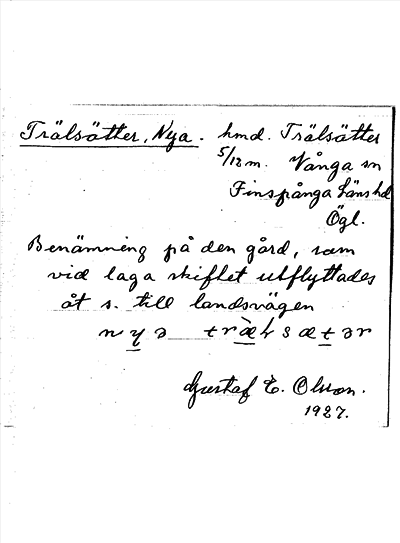 Trälsätter, Nya. hmd. Trälsätter
5/18 m. Vånga sn
Finspånga läns hd
Ögl.
Benämning på den gård, som
vid laga skiftet utflyttades
åt s. till landsvägen
nyə træ̀ɫsætər
Gustaf E. Olsson.
1927.